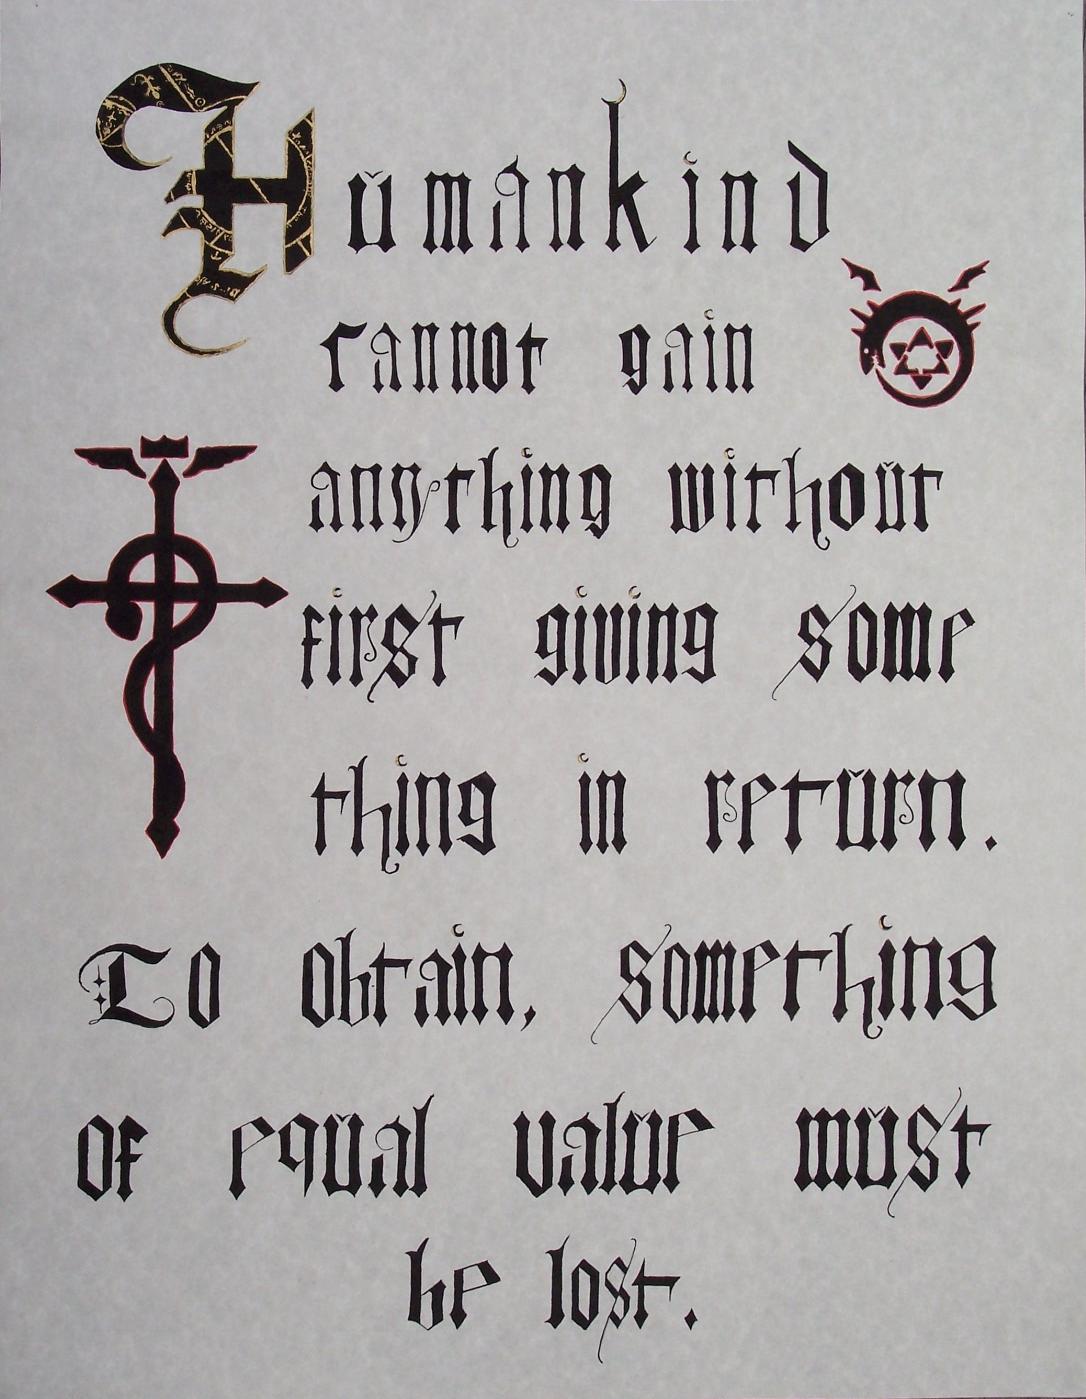 Humankind
cannot gain
anything without
first giving some
thing in return.
To obtain, something
of equal value must
be lost.